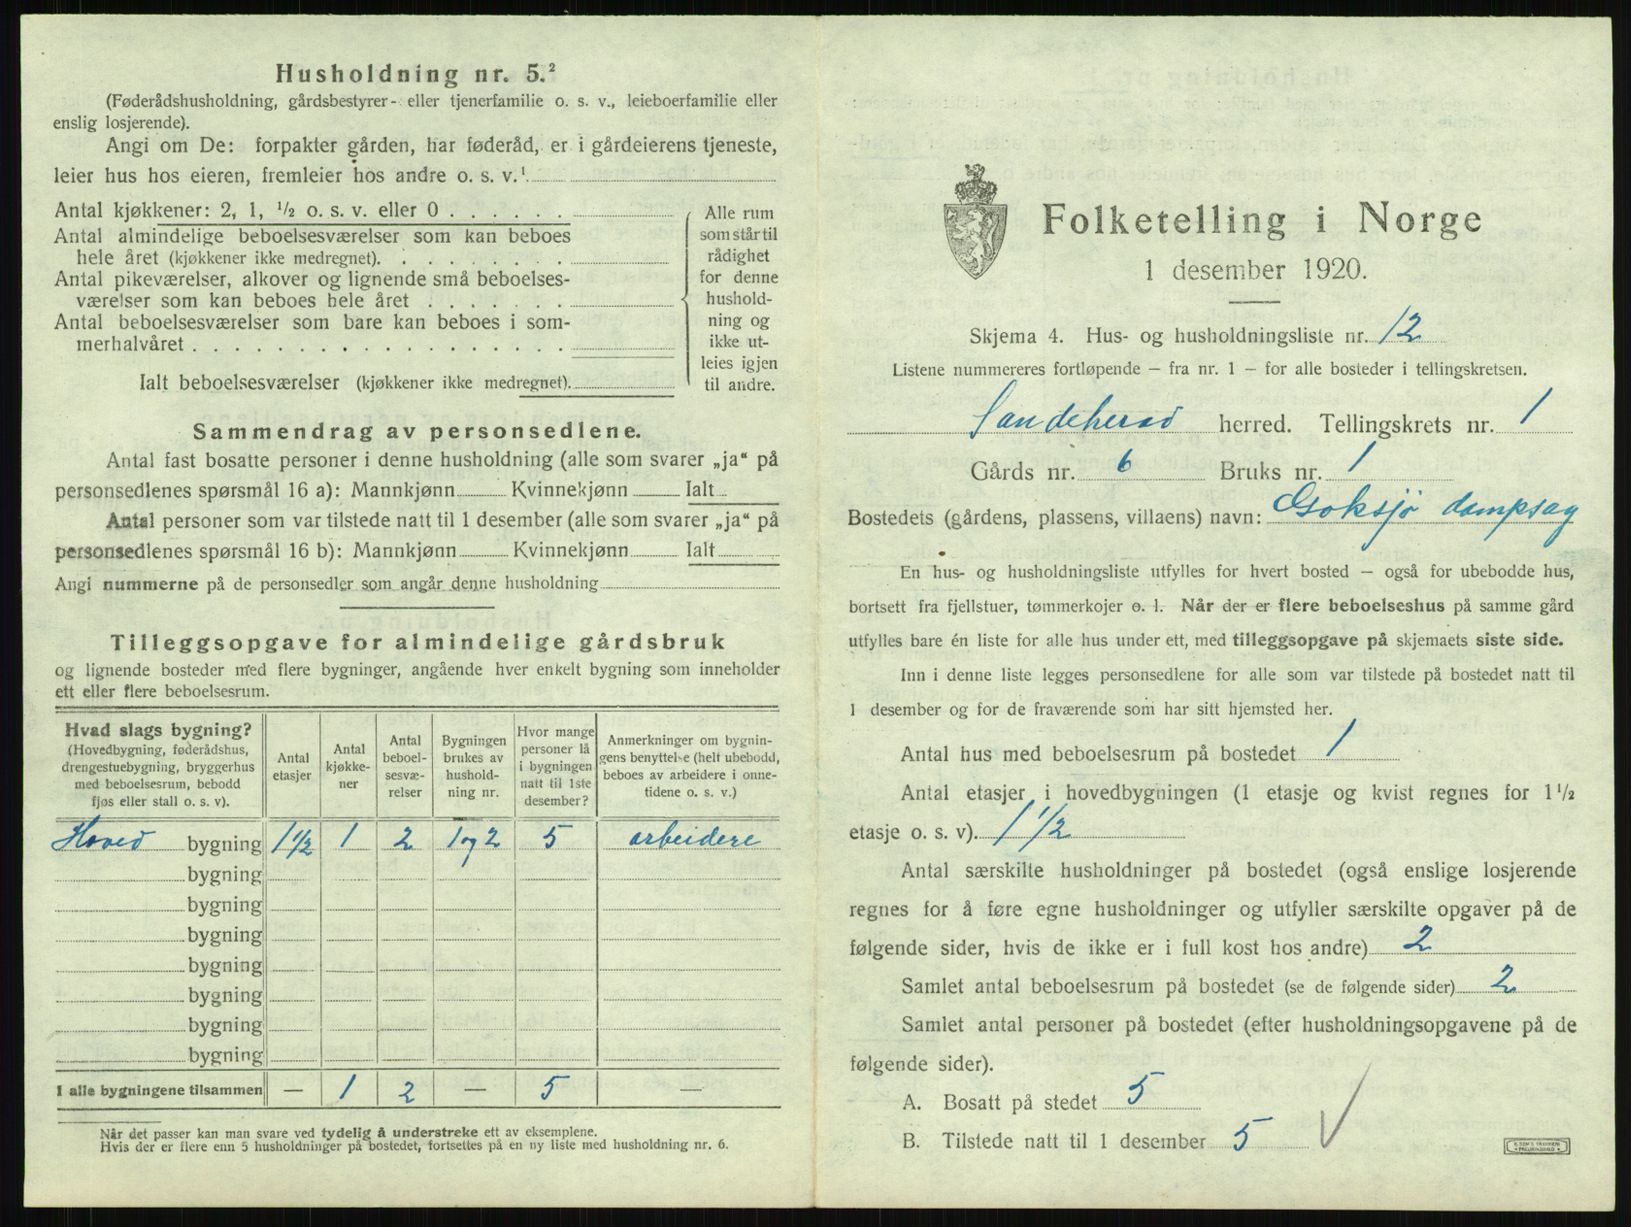 Husholdning nr. 5.²
(Føderådshusholdning, gårdsbestyrer- eller tjenerfamilie o. s. v., leieboerfamilie eller
enslig losjerende).
Angi om De: forpakter gården, har føderåd, er i gårdeierens tjeneste,
leier hus hos eieren, fremleier hos andre o. s. v.¹
Antal kjøkkener: 2, 1, ½ o. s. v. eller 0
Antal almindelige beboelsesværelser som kan beboes
hele året (kjøkkener ikke medregnet).
Antal pikeværelser, alkover og lignende små beboelses-
værelser som kan beboes hele året
Antal beboelsesværelser som bare kan beboes i som-
merhalvåret
Ialt beboelsesværelser (kjøkkener ikke medregnet).
Alle rum
som står til
rådighet
for denne
hushold-
ning og
ikke ut-
leies igjen
til andre.
Sammendrag av personsedlene.
Antal fast bosatte personer i denne husholdning (alle som svarer „ja“ på
personsedlenes spørsmål 16 a): Mannkjønn Kvinnekjønn Ialt
Antal personer som var tilstede natt til 1 desember (alle som svarer „ja“ på
personsedlenes spørsmål 16 b): Mannkjønn Kvinnekjønn Ialt
Angi nummerne på de personsedler som angår denne husholdning
Tilleggsopgave for almindelige gårdsbruk
og lignende bosteder med flere bygninger, angående hver enkelt bygning som inneholder
ett eller flere beboelsesrum.
Hvad slags bygning?
(Hovedbygning, føderådshus,
drengestuebygning, bryggerhus
med beboelsesrum, bebodd
fjøs eller stall o. s. v).
Antal
etasjer
Antal
kjøkke-
ner
Antal
beboel-
sesvæ-
relser
Bygningen
brukes av
hushold-
ning nr.
Hvor mange
personer lå
i bygningen
natt til 1ste
desember?
Anmerkninger om bygnin-
gens benyttelse (helt ubebodd,
beboes av arbeidere i onne-
tidene o. s. v.)
Hoved bygning 1½ 1 2 1 og 2 5 arbeidere
bygning
bygning
bygning
bygning
bygning
bygning
bygning
I alle bygningene tilsammen — 1 2 — 5 —
Når det passer kan man svare ved tydelig å understreke ett av eksemplene.
Hvis der er flere enn 5 husholdninger på bostedet, fortsettes på en ny liste med husholdning nr. 6.
Folketelling i Norge
1 desember 1920.
Skjema 4. Hus- og husholdningsliste nr. 12
Listene nummereres fortløpende — fra nr. 1 — for alle bosteder i tellingskretsen.
Sandeherad herred. Tellingskrets nr. 1
Gårds nr. 6 Bruks nr. 1
Bostedets (gårdens, plassens, villaens) navn: Goksjø dampsag
En hus- og husholdningsliste utfylles for hvert bosted — også for ubebodde hus,
bortsett fra fjellstuer, tømmerkojer o. l. Når der er flere beboelseshus på samme gård
utfylles bare én liste for alle hus under ett, med tilleggsopgave på skjemaets siste side.
Inn i denne liste legges personsedlene for alle som var tilstede på bostedet natt til
1 desember og for de fraværende som har sitt hjemsted her.
Antal hus med beboelsesrum på bostedet 1
Antal etasjer i hovedbygningen (1 etasje og kvist regnes for 1½
etasje o. s. v). 1½
Antal særskilte husholdninger på bostedet (også enslige losjerende
regnes for å føre egne husholdninger og utfyller særskilte opgaver på de
følgende sider, hvis de ikke er i full kost hos andre) 2
Samlet antal beboelsesrum på bostedet (se de følgende sider) 2
Samlet antal personer på bostedet (efter husholdningsopgavene på de
følgende sider).
A. Bosatt på stedet 5
B. Tilstede natt til 1 desember 5